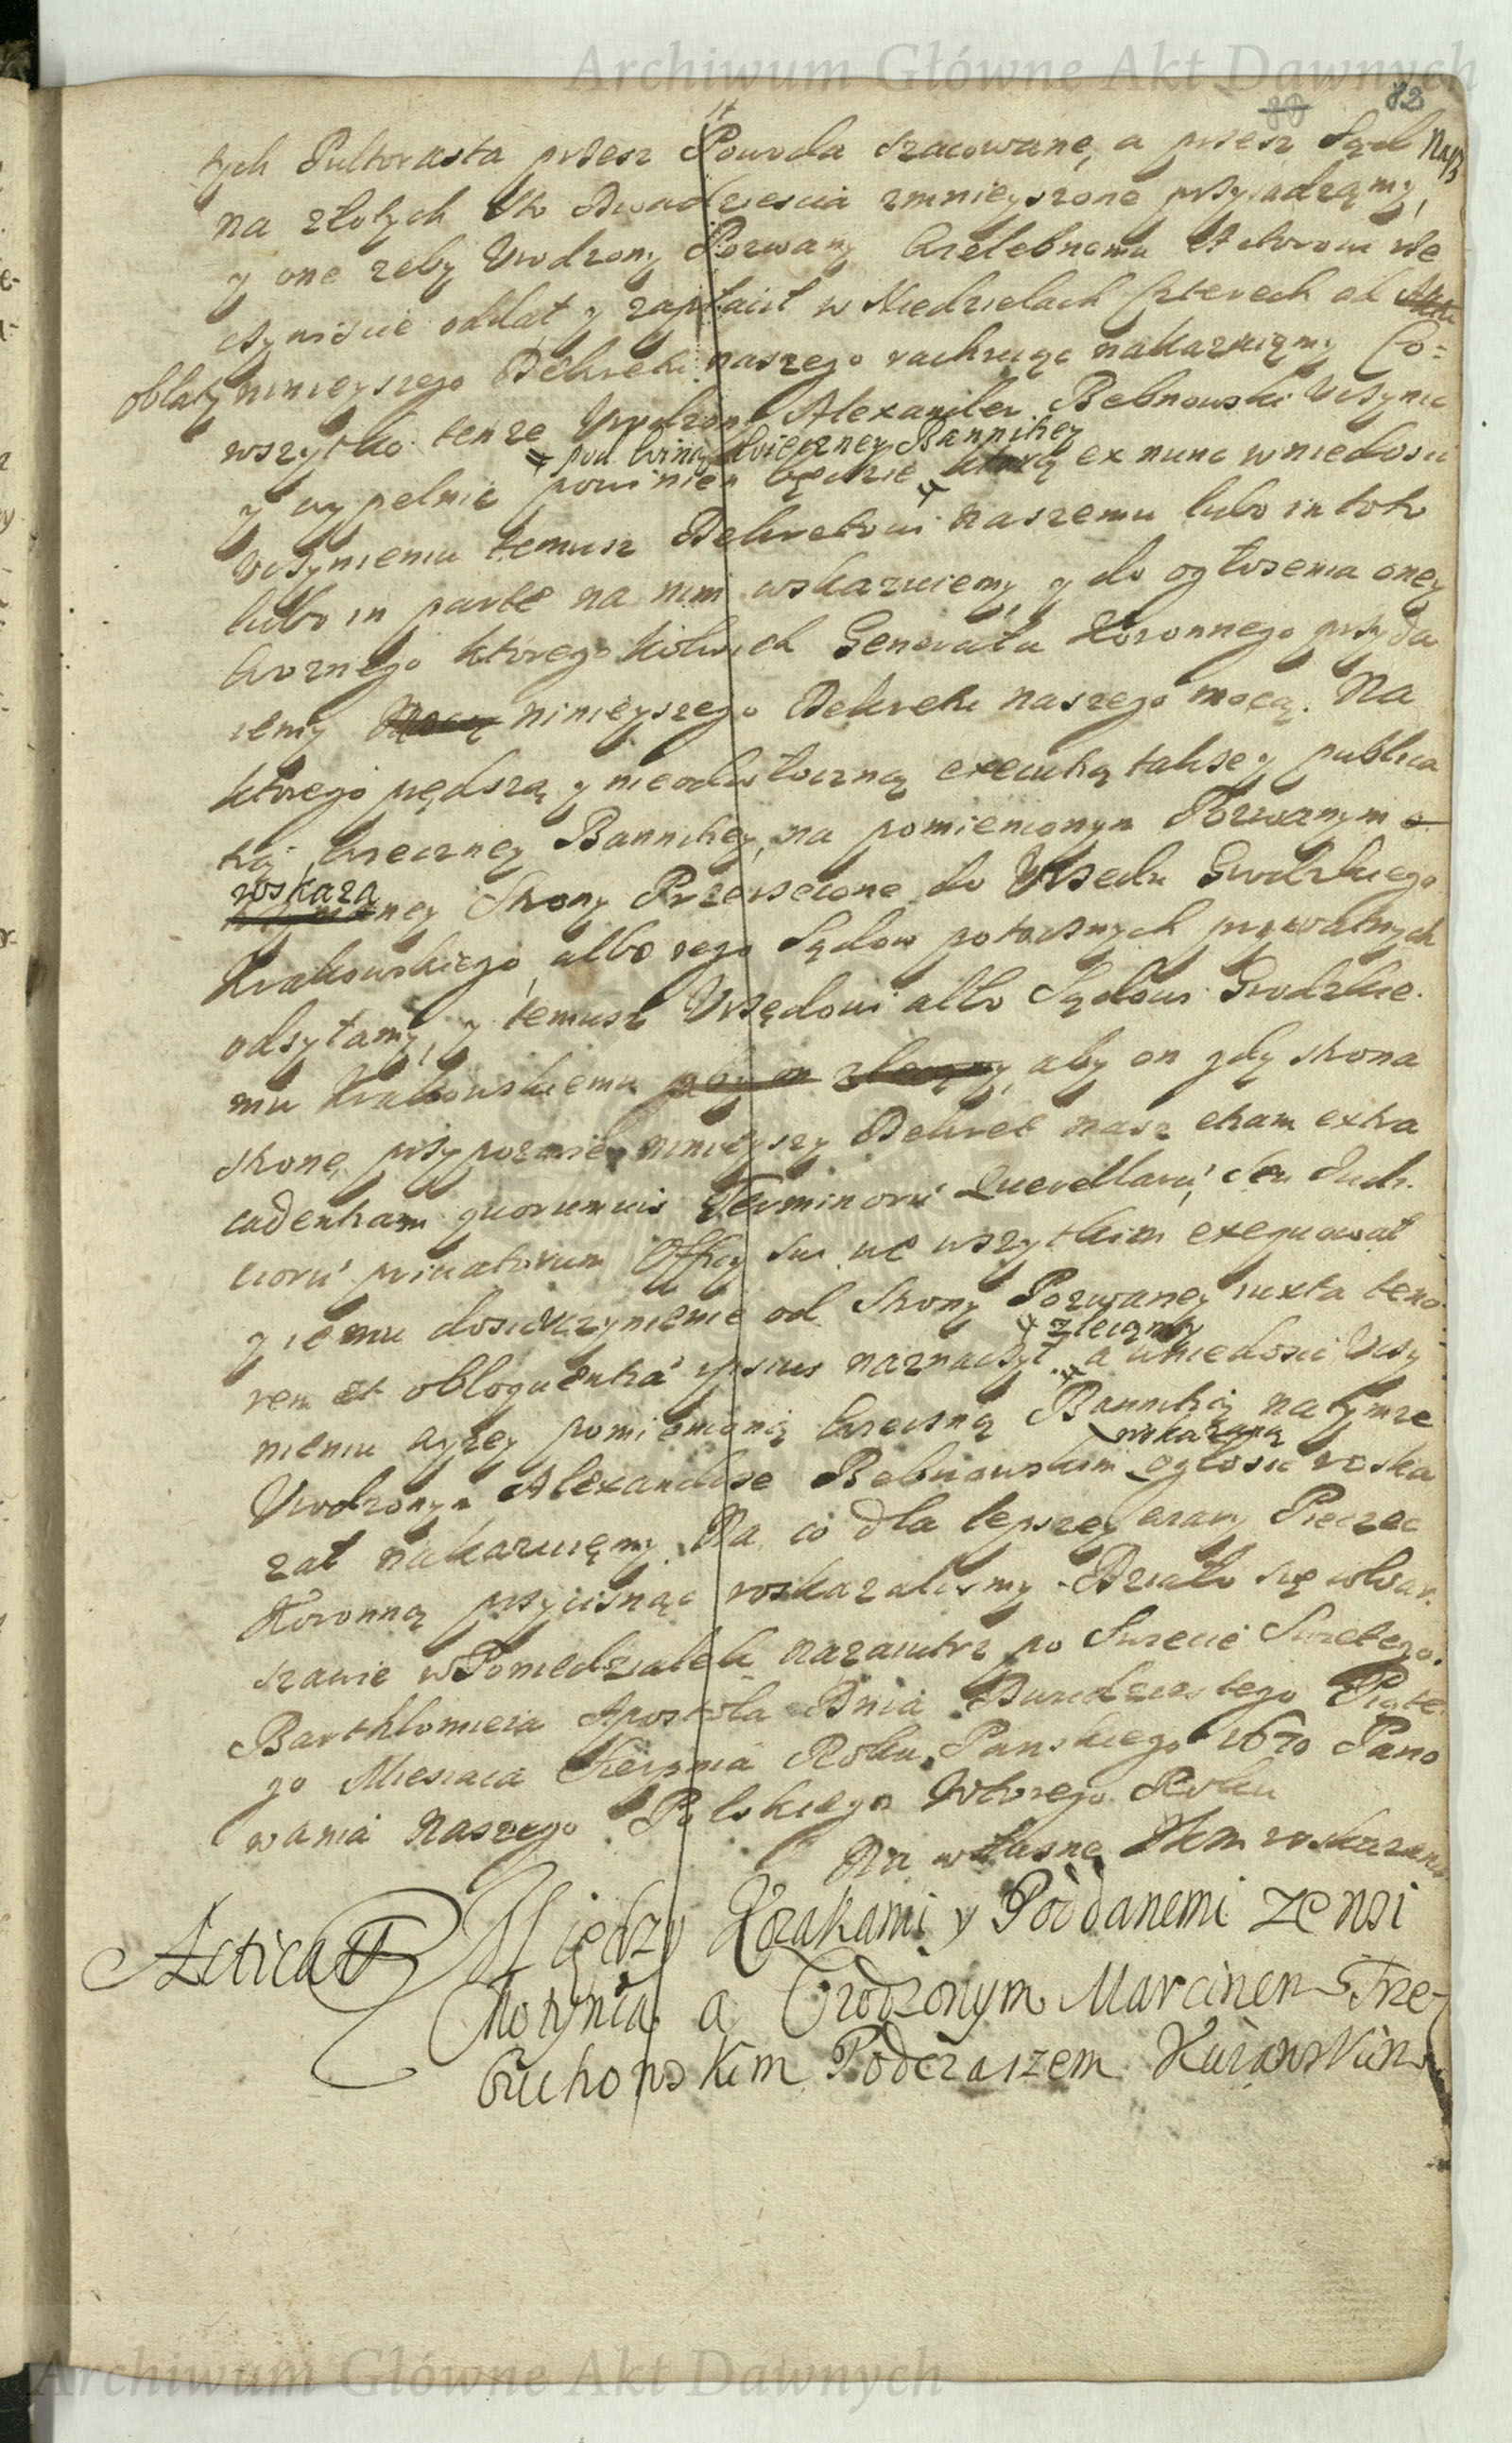 Archiwum Główne Akt Dawnych
80 82
tych Pultorasta przesz Powoda szacowane, a przesz Sąd Nasz
na złotych Sto Dwadziescia zmnieyszone przysądzamy,
y one zeby Urodzony Pozwany Wielebnemu Aktorowi rze
czywiscie oddał y zapłacił w Niedzielach Czterech od
oblaty ninieyszego Dekretu naszego rachuiąc nakazuięmy Co=
wszytko tenze Urodzony Alexander Bebnowski Uczynic
pod winą Wieczney Bannitiey
y wypełnic powinien będzie ktorą ex nunc w niedosic
Uczynieniu temusz Dekretowi naszemu lubo in toto
lubo in parte na nim wskazuiemy y do ogłosenia oney
Woznego ktorego kolwiek Generała Koronnego przyda
iemy Mocą ninieyszego Dekretu naszego mocą. Na
ktorego prędszą y nieodwłoczną execucyą taksey publica
tią Wieczney Bannitiey, na pomienionym Pozwanym o
roskaza
ney Strony Przerzeczone do Urzędu Grodzkiego
Krakowskiego, albo iego Sądow potocznych prywatnych
odsyłamy, y temusz Urzędowi albo Sądowi Grodzkie.
mu Krakowskiemu aby on zlecamy, aby on gdy strona
stronę przypozwie ninieyszy Dekret nasz etiam extra
cadentiam quorumuis Terminoru Querellaru, seu Judi.
cioru priuatorum Officy sui we wszytkim exequował
y iemu dosicuczynienie od Strony Pozwaney iuxta teno
zlecamy
rem et obloquentia ipsius naznaczył a wniedosic Uczy
nieniu wyzey pomienioną Wieczną Bannitią na tymze
wskazaną
Urodzonym Alexandrze Bebnowskim ogłosic roska
zał nakazuięmy. Na co dla lepszey wiary Pieczęc
Koronną przycisnąc roskazalismy. Działo się w War.
szawie w Poniedziałek nazaiutrz po Swiecie Swietego.
Barthłomieia Apostoła Dnia Dwudziestego Piąte.
go Miesiaca Sierpnia Roku Panskiego 1670 Pano
wania naszego Polskiego Wtorego Roku
Na własne JKM roskazanie
Acticat Między Kozakami y Poddanemi ze wsi
Motynia a Urodzonym Marcinem Trze-
buchowskim Podczaszem Kuiawskim
Archiwum Główne Akt Dawnych